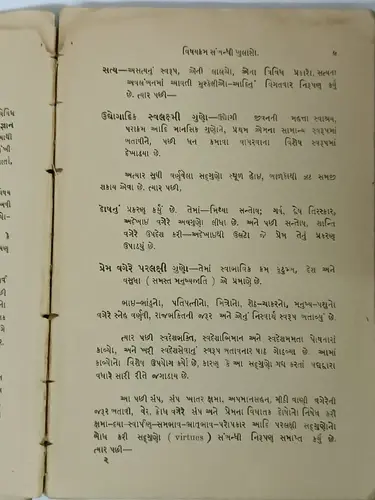 વિષયક્રમ સંબન્ધી ખુલાસો. ૭
સત્ય—અસત્યનું સ્વરૂપ, એની લાલચો, એના વિવિધ પ્રકારો, સત્યના
અવલંબનમાં આવતી મુશ્કેલીઓ—આદિનું વિગતવાર નિરૂપણ કર્યું
છે. ત્યાર પછી—
ઉદ્યોગાદિક સ્વલક્ષી ગુણો—ઉદ્યોગી જીવનની મહત્તા સ્વાશ્રય,
પરાક્રમ આદિ માનસિક ગુણોને, પ્રથમ એમના સામાન્ય સ્વરૂપમાં
બતાવીને, પછી ધન કમાવા વાપરવાના વિશેષ સ્વરૂપમાં
દેખાડ્યા છે.
અત્યાર સુધી વર્ણવેલા સદ્ગુણો સ્થૂળ હોઇ, બાળકોથી ઝટ સમજી
શકાય એવા છે. ત્યાર પછી,
દોષનું પ્રકરણ કર્યું છે. તેમાં—મિથ્યા સન્તોષ; ગર્વ, દ્વેષ તિરસ્કાર,
અદેખાઇ વગેરે અવગુણો લીધા છે. અને પછી સન્તોષ, શાન્તિ
વગેરે ઉપદેશ કરી—અદેખાઇથી ઉલટો જે પ્રેમ તેનું પ્રકરણ
ઉપાડ્યું છે.
પ્રેમ વગેરે પરલક્ષી ગુણો—તેમાં સ્વાભાવિક ક્રમ કુટુમ્બ, દેશ અને
વસુધા (સમસ્ત મનુષ્યજાતિ) એ પ્રમાણે છે.
ભાઇ-ભાંડુનો, પતિપત્નીનો, મિત્રોનો, શેઠ-ચાકરનો, મનુષ્ય-પશુનો
વગેરે સ્નેહ વર્ણવી, રાજભક્તિની જરૂર અને એનું નિસ્વાર્થ સ્વરૂપ બતાવ્યું છે.
ત્યાર પછી સ્વદેશભક્તિ, સ્વદેશાભિમાન અને સ્વદેશમમતા પોષનારાં
કાવ્યો, અને ખરી સ્વદેશસેવાનું સ્વરૂપ બતાવનાર પાઠ ગોઠવ્યા છે. આમાં
કાવ્યોનો વિશેષ ઉપયોગ કર્યો છે, કારણ કે આ સદ્ગુણો ગદ્ય કરતાં પદ્યદ્વારા
વધારે સારી રીતે જગાડાય છે.
આ પછી સંપ, સંપ ખાતર ક્ષમા, અપમાનસહન, મીઠી વાણી વગેરેની
જરૂર બતાવી, વેર, ક્રોધ વગેરે સંપ અને પ્રેમના વિઘાતક દોષોનો નિષેધ કરી
ક્ષમા-દયા-સ્વાર્પણ-સમભાવ-ભ્રાતૃભાવ-પરોપકાર આદિ પરલક્ષી સદ્ગુણોનો
બોધ કરી સદ્ગુણો (virtues) સંબન્ધી નિરૂપણ સમાપ્ત કર્યું છે.
ત્યાર પછી—
૨